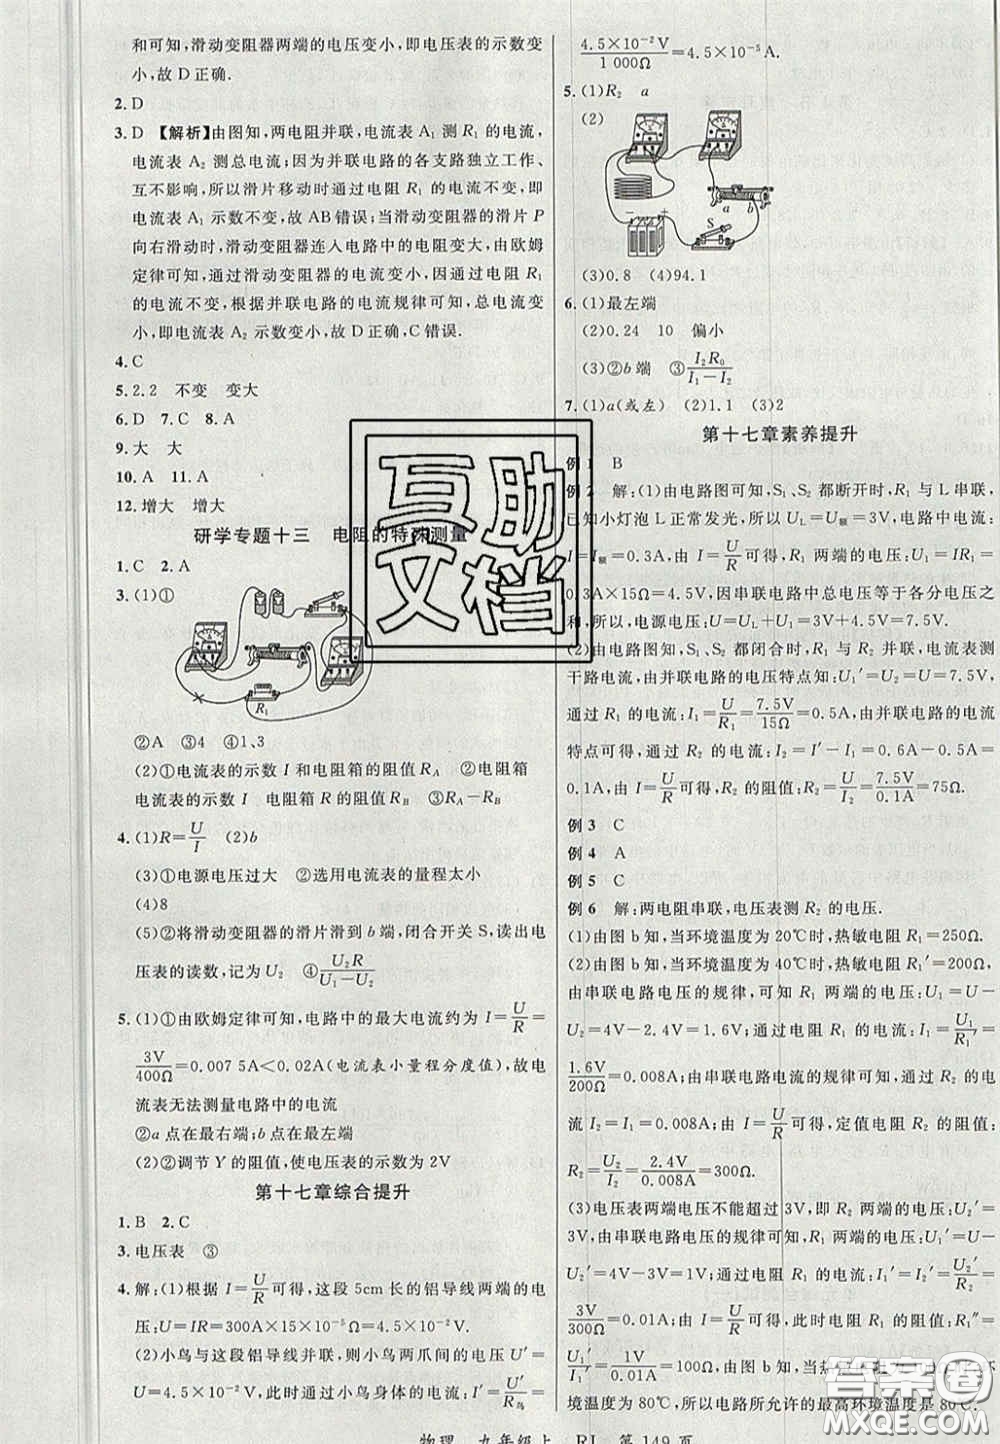 和可知,滑动变阻器两端的电压变小,即电压表的示数变
小,故 D 正确.
2. D
3. D 【解析】由图知,两电阻并联,电流表 A₁ 测 R₁ 的电流,
电流表 A₂ 测总电流;因为并联电路的各支路独立工作、
互不影响,所以滑片移动时通过电阻 R₁ 的电流不变,即
电流表 A₁ 示数不变,故 AB 错误;当滑动变阻器的滑片 P
向右滑动时,滑动变阻器连入电路中的电阻变大,由欧姆
定律可知,通过滑动变阻器的电流变小,因通过电阻 R₁
的电流不变,根据并联电路的电流规律可知,总电流变
小,即电流表 A₂ 示数变小,故 D 正确,C 错误.
4. C
5. 2.2 不变 变大
6. D 7. C 8. A
9. 大 大
10. A 11. A
12. 增大 增大
研学专题十三 电阻的特殊测量
1. C 2. A
3. (1)①
R₁
②A ③4 ④1、3
(2)①电流表的示数 I 和电阻箱的阻值 R_A ②电阻箱
电流表的示数 I 电阻箱的阻值 R_B ③R_A－R_B
4. (1)R=U/I (2)b
(3)①电源电压过大 ②选用电流表的量程太小
(4)8
(5)②将滑动变阻器的滑片滑到 b 端,闭合开关 S,读出电
压表的读数,记为 U₂ ④U₂R/(U₁－U₂)
5. (1)①由欧姆定律可知,电路中的最大电流约为 I=U/R=
3V/400Ω=0.007 5A<0.02A(电流表小量程分度值),故电
流表无法测量电路中的电流
②a 点在最右端;b 点在最左端
(2)②调节 Y 的阻值,使电压表的示数为 2V
第十七章综合提升
1. B 2. C
3. 电压表 ③
4. 解:(1)根据 I=U/R 可得,这段 5cm 长的铝导线两端的电
压:U=IR=300A×15×10⁻⁵Ω=4.5×10⁻²V.
(2)小鸟与这段铝导线并联,则小鸟两爪间的电压 U′=
U=4.5×10⁻²V,此时通过小鸟身体的电流:I′=U′/R鸟=
4.5×10⁻²V/1 000Ω=4.5×10⁻⁵A.
5. (1)R₂ a
(2)
a b
－ ＋
S
(3)0.8 (4)94.1
6. (1)最左端
(2)0.24 10 偏小
(3)②b 端 ③I₂R₀/(I₁－I₂)
7. (1)a(或左) (2)1.1 (3)2
第十七章素养提升
例 1 B
例 2 解:(1)由电路图可知,S₁、S₂ 都断开时,R₁ 与 L 串联,
已知小灯泡 L 正常发光,所以 U_L=U额=3V,电路中电流:
I=I额=0.3A,由 I=U/R 可得,R₁ 两端的电压:U₁=IR₁=
0.3A×15Ω=4.5V,因串联电路中总电压等于各分电压之
和,所以,电源电压:U=U_L+U₁=3V+4.5V=7.5V.
(2)由电路图可知,S₁、S₂ 都闭合时,R₁ 与 R₂ 并联,电流表测
干路电流,由并联电路的电压特点知:U₁′=U₂=U=7.5V,
通过 R₁ 的电流:I₁=U/R₁=7.5V/15Ω=0.5A,由并联电路的电流
特点可得,通过 R₂ 的电流:I₂=I′－I₁=0.6A-0.5A=
0.1A,由 I=U/R 可得,R₂ 的阻值:R₂=U/I₂=7.5V/0.1A=75Ω.
例 3 C
例 4 A
例 5 C
例 6 解:两电阻串联,电压表测 R₂ 的电压.
(1)由图 b 知,当环境温度为 20℃时,热敏电阻 R₁=250Ω.
(2)由图 b 知,当环境温度为 40℃时,热敏电阻 R₁′=200Ω,
由串联电路电压的规律,可知 R₁ 两端的电压:U₁=U－
U₂=4V－2.4V=1.6V;通过电阻 R₁ 的电流:I₁=U₁/R₁′=
1.6V/200Ω=0.008A;由串联电路电流的规律可知,通过 R₂ 的电
流 I₂=I₁=0.008A;由 I=U/R 可得,定值电阻 R₂ 的阻值:
R₂=U₂/I₂=2.4V/0.008A=300Ω.
(3)电压表两端电压不能超过 3V,即 R₂ 两端的电压:U₂′=
3V,由串联电路电压的规律可知,R₁ 两端的电压:U₁′=U－
U₂′=4V－3V=1V;通过 R₁ 的电流:I₁′=I₂′=U₂′/R₂=
3V/300Ω=0.01A;由 I=U/R 可得,此时电阻 R₁ 的阻值:R₁″=
U₁′/I₁′=1V/0.01A=100Ω,由图 b 知,当热
环境温度为 80℃,所以电路所允许的最高环境温度是 80℃.
物理 九年级上 RJ 第 149 页
互助
文档
答案圈
MXQE.COM